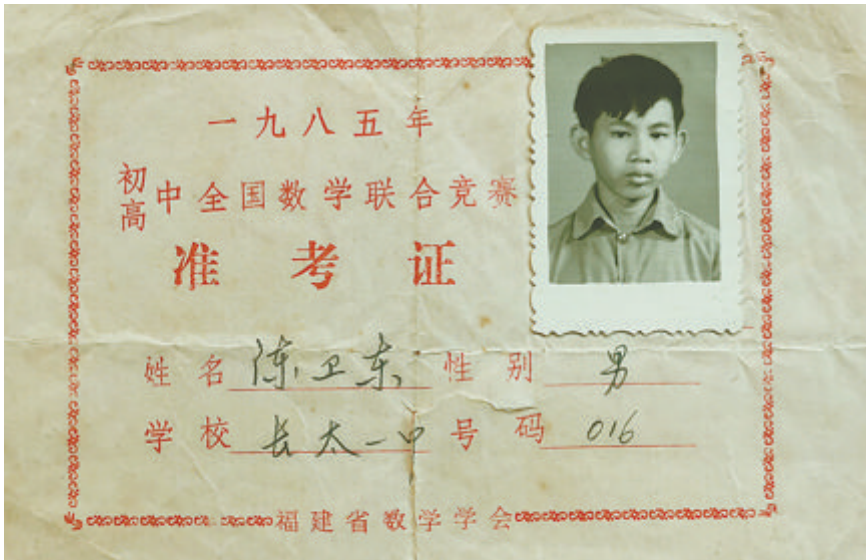 一九八五年
初高中全国数学联合竞赛
准考证
姓名 陈卫东 性别 男
学校 长太一中 号码 016
福建省数学学会